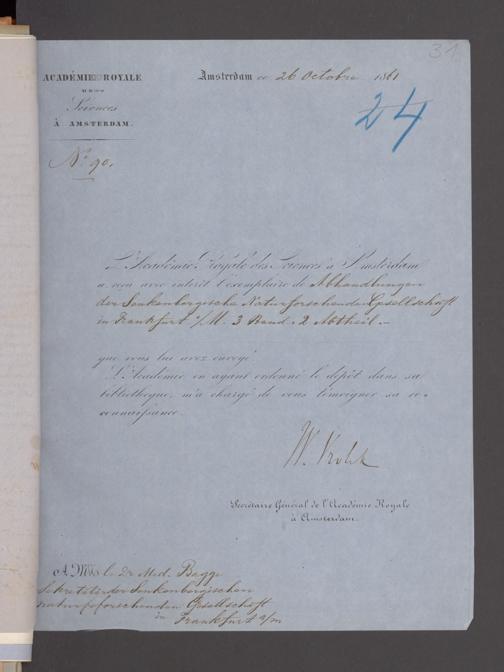 31
ACADÉMIE ROYALE
DES
Sciences
À AMSTERDAM.
Amsterdam ce 26 Octobre 1861
24
N° 90.
L'Académie Royale des Sciences à Amsterdam
a reçu avec intérêt l'exemplaire de Abhandlungen
der Senkenbergische Naturforschenden Gesellschaft
in Frankfurt a/M. 3 Band. 2 Abtheil.
que vous lui avez envoyé.
L'Académie en ayant ordonné le dépôt dans sa
bibliothèque, m'a chargé de vous témoigner sa re-
connaissance.
W. Vrolik
Secrétaire Général de l'Académie Royale
à Amsterdam.
A Mr le Dr Med. Bagge
Sekretär der Senkenbergischen
naturforschenden Gesellschaft
in Frankfurt a/m